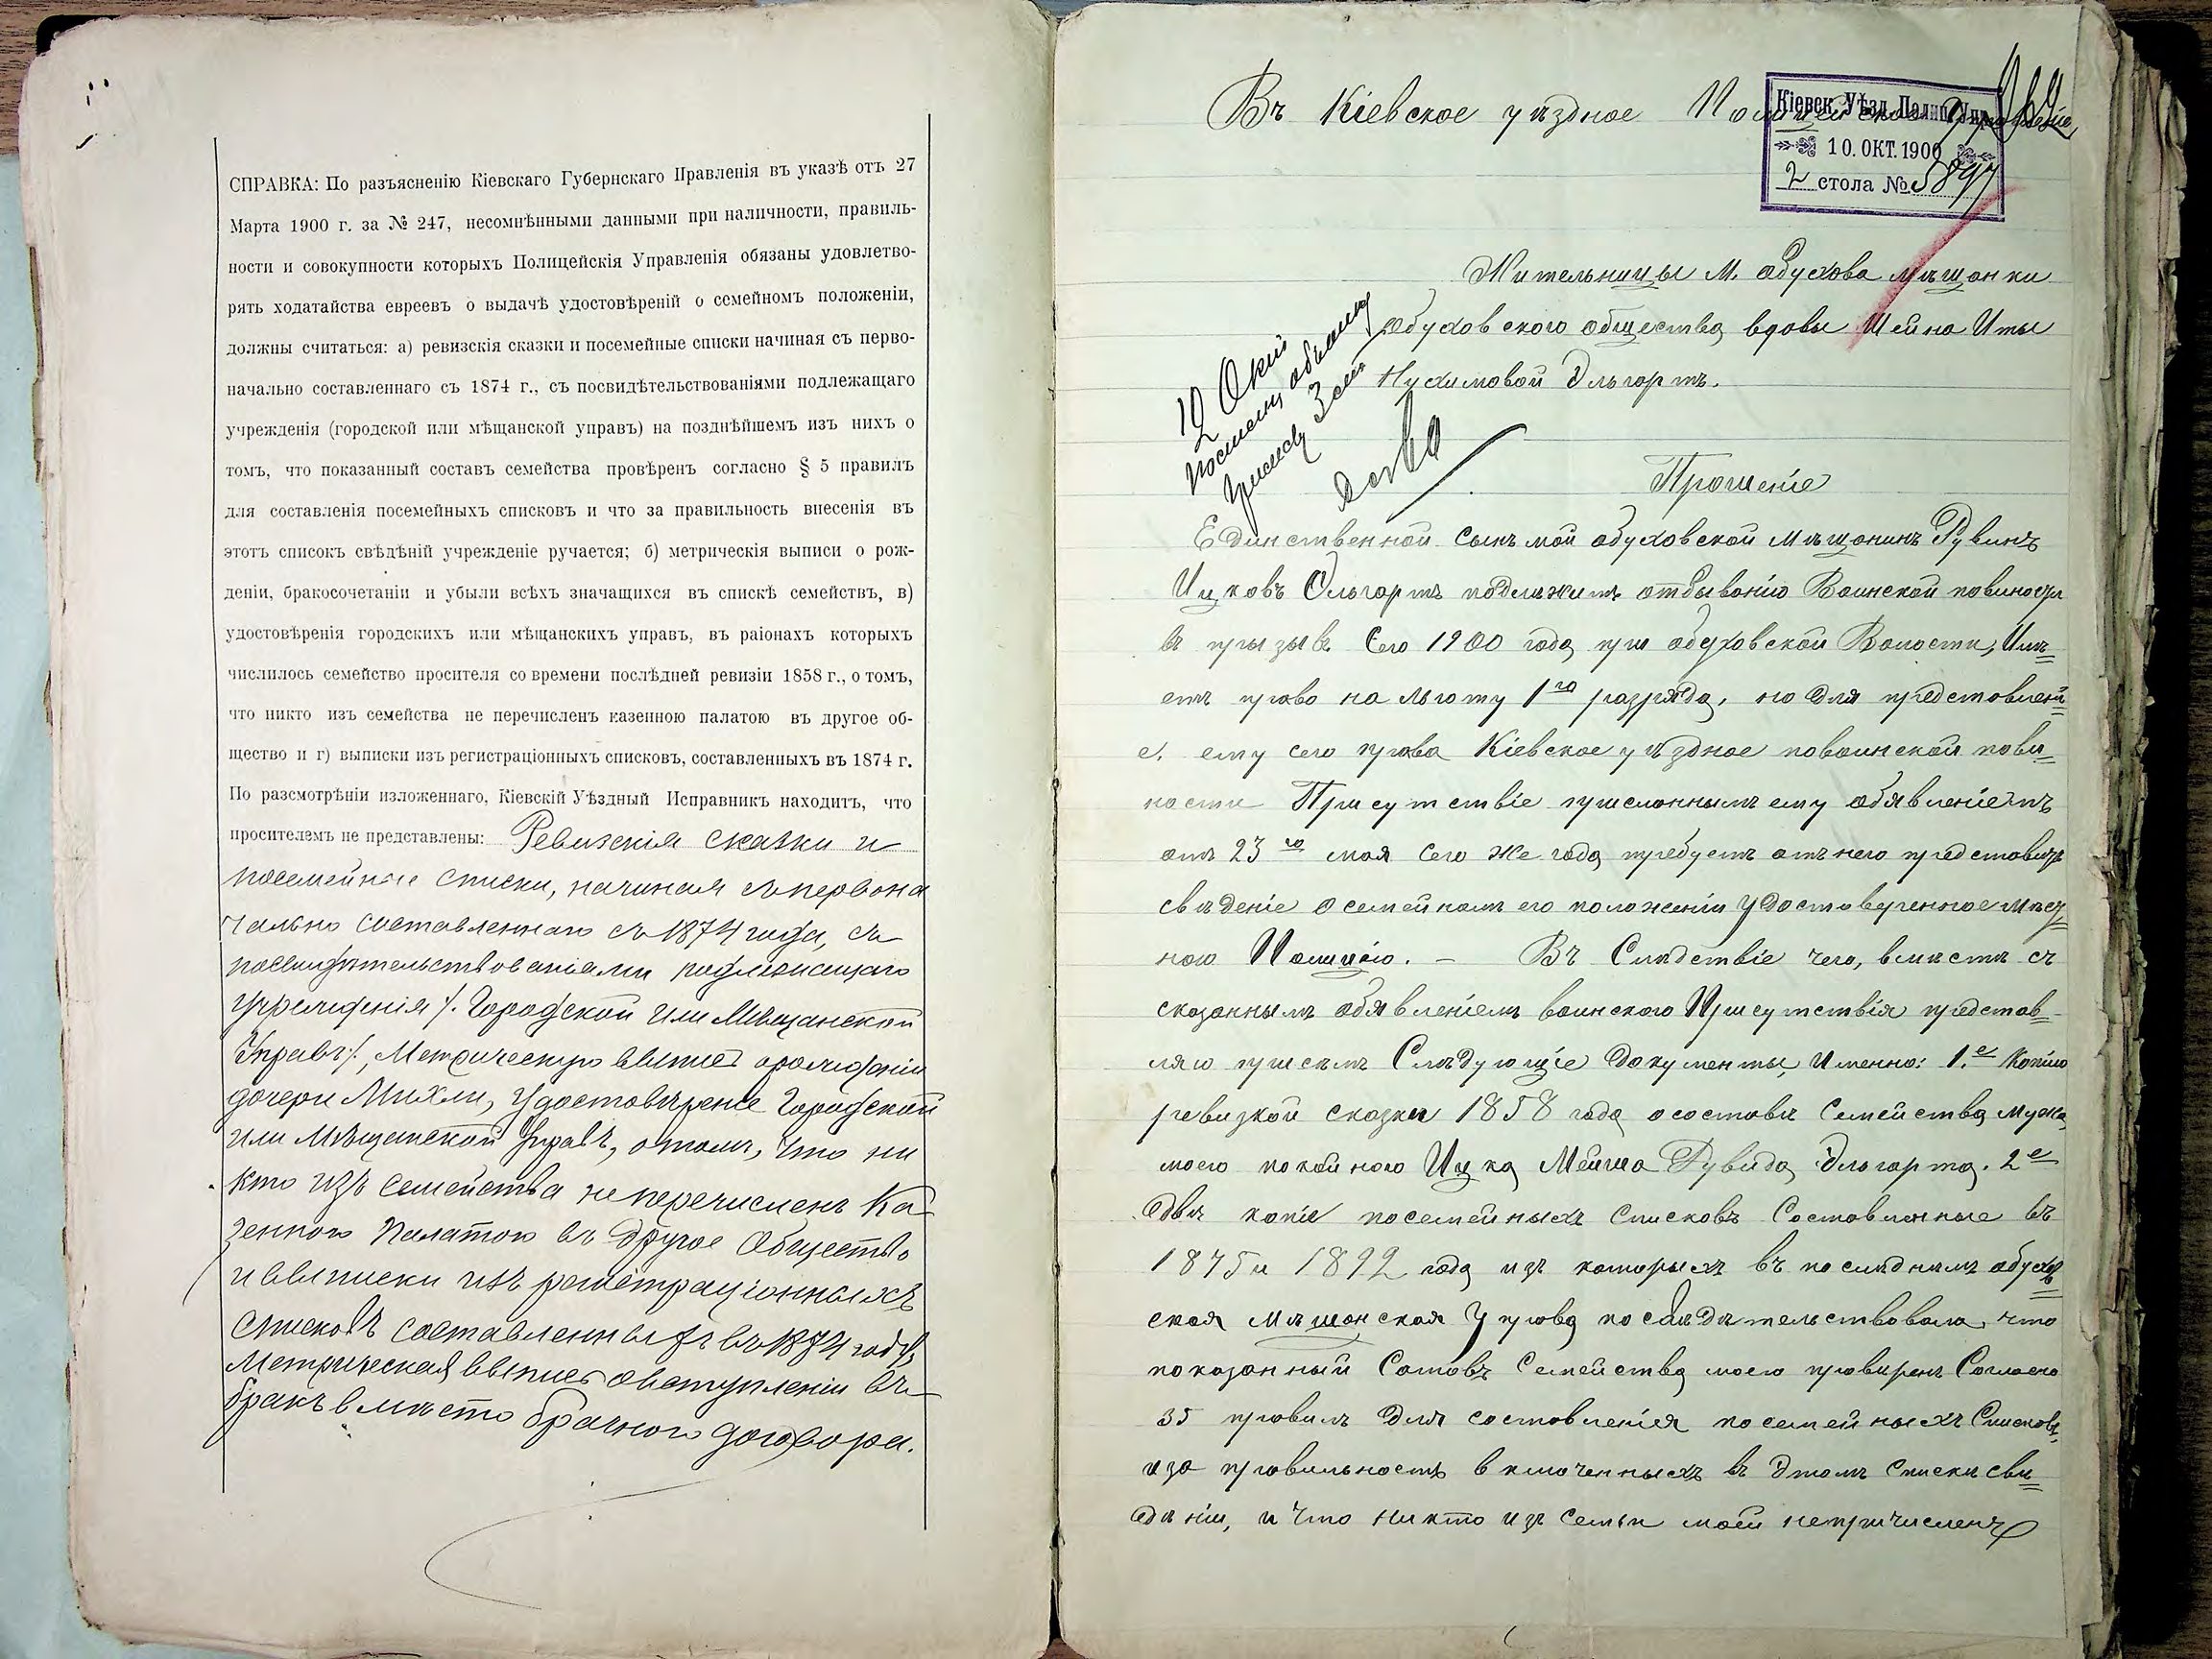 СПРАВКА: По разъясненію Кіевскаго Губернскаго Правленія въ указѣ отъ 27
Марта 1900 г. за № 247, несомнѣнными данными при наличности, правиль-
ности и совокупности которыхъ Полицейскія Управленія обязаны удовлетво-
рять ходатайства евреевъ о выдачѣ удостовѣреній о семейномъ положеніи,
должны считаться: а) ревизскія сказки и посемейные списки начиная съ перво-
начально составленнаго съ 1874 г., съ посвидѣтельствованіями подлежащаго
учрежденія (городской или мѣщанской управъ) на позднѣйшемъ изъ нихъ о
томъ, что показанный составъ семейства провѣренъ согласно § 5 правилъ
для составленія посемейныхъ списковъ и что за правильность внесенія въ
этотъ списокъ свѣдѣній учрежденіе ручается; б) метрическія выписи о рож-
деніи, бракосочетаніи и убыли всѣхъ значащихся въ спискѣ семействъ, в)
удостовѣренія городскихъ или мѣщанскихъ управъ, въ раіонахъ которыхъ
числилось семейство просителя со времени послѣдней ревизіи 1858 г., о томъ,
что никто изъ семейства не перечисленъ казенною палатою въ другое об-
щество и г) выписки изъ регистраціонныхъ списковъ, составленныхъ въ 1874 г.
По разсмотрѣніи изложеннаго, Кіевскій Уѣздный Исправникъ находитъ, что
просителемъ не представлены: Ревизскія сказки и
посемейные списки, начиная съ первона
чально составленнаго съ 1874 года, съ
посвидѣтельствованіями подлежащаго
учрежденія /. Городской или Мѣщанской
Управъ /, Метрическую выпись о рожденіи
дочери Михли, удостовѣреніе Городской
или Мѣщанской Управъ, о томъ, что ни
кто изъ семейства не перечисленъ Ка
зенною Палатою въ другое Общество
и выписки изъ регистраціонныхъ
списковъ составленныхъ въ 1874 году
Метрическая выпись о вступленіи въ
бракъ вмѣсто брачнаго договора.
Въ Кіевское уѣздное Полицейское Управленіе
Кіевск. Уѣзд. Полиц. Упр.
10. ОКТ. 1900
2 стола № 5897
Жительницы м. Обухова мѣщанки
Обуховского общества вдовы Шейна Иты
Нухимовой Эльгортъ.
12 Окт
Прошеніе
Единственной сынъ мой обуховской мѣщанинъ Рувинъ
Ицковъ Эльгортъ подлежитъ отбыванію Воинской повиности
въ призывъ Сего 1900 года при обуховской Волости, Имѣ=
етъ право на льготу 1го разряда, но для представлені=
е. ему сего права Кіевское уѣздное повоинской пови=
ности Присутствіе присланнымъ ему обявленіемъ
отъ 23го мая Сего же года требуетъ отъ него представить
свѣденіе о семейномъ его положеніи удостоверенное мѣст
ною Полиціею. – Въ Слѣдствіе чего, вместѣ съ
сказаннымъ обявленіемъ воинского Присутствія представ-
ляю при семъ Слѣдующіе документы, Именно: 1.е Копію
ревизкой сказки 1858 года о составѣ Семейства мужа
моего покойного Ицка Мейша Рувида Эльгорта. 2е
Двѣ копіе посемейныхъ списковъ Составленные въ
1875 и 1892 года изъ которыхъ въ послѣднимъ обухов
ская мѣщанская Управа посвѣдѣтельствовала, что
показанный Соtавъ Семейства моего провѣренъ Согласно
35 правилъ для составленія посемейныхъ Списковъ,
и за правильность включенныхъ въ этомъ Списки сви=
дѣніи, и что никто изъ Семьи моей непричисленъ